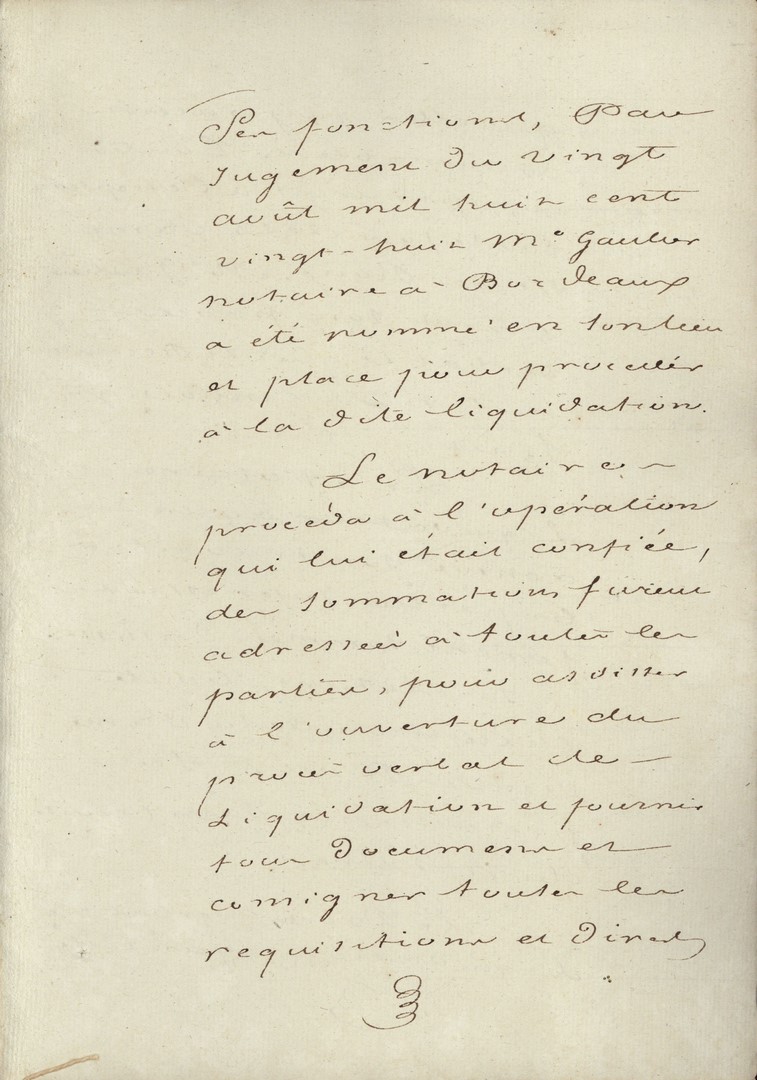 Ses fonctions, Par
Jugement du vingt
août mil huit cent
vingt-huit Me Gautier
notaire à Bordeaux
a été nommé en son lieu
et place pour procéder
à la dite liquidation.
Le notaire
procéda à l'opération
qui lui était confiée,
des sommations furent
adressées à toutes les
parties, pour assister
à l'ouverture du
procès verbal de
Liquidation et fournir
tous Documens et
consigner toutes les
requisitions et Dires